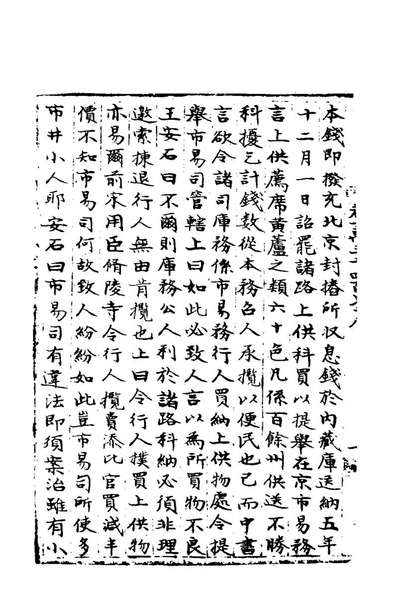 本錢即撥充北京封樁所収息錢於内藏庫送納五年
十二月一日詔罷諸路上供科買以提舉在京市易務
言上供薦席黄蘆之類六十色凡係百餘州供送不勝
科擾乞計錢數從本務召人承攬以便民也已而中書
言欲令諸司庫務係市易務行人買納上供物處令提
舉市易司管轄上曰如此必致人言以為所買物不良
王安石曰不爾則庫務公人利於諸路科納必須非理
邀索揀退行人無由肯攬也上曰令行人撲買上供物
亦易爾前宋用臣脩陵寺令行人攬賣漆比官買减半
價不知市易司何故致人紛紛如此豈市易司所使多
市井小人耶安石曰市易司有違法即須案治雖有小